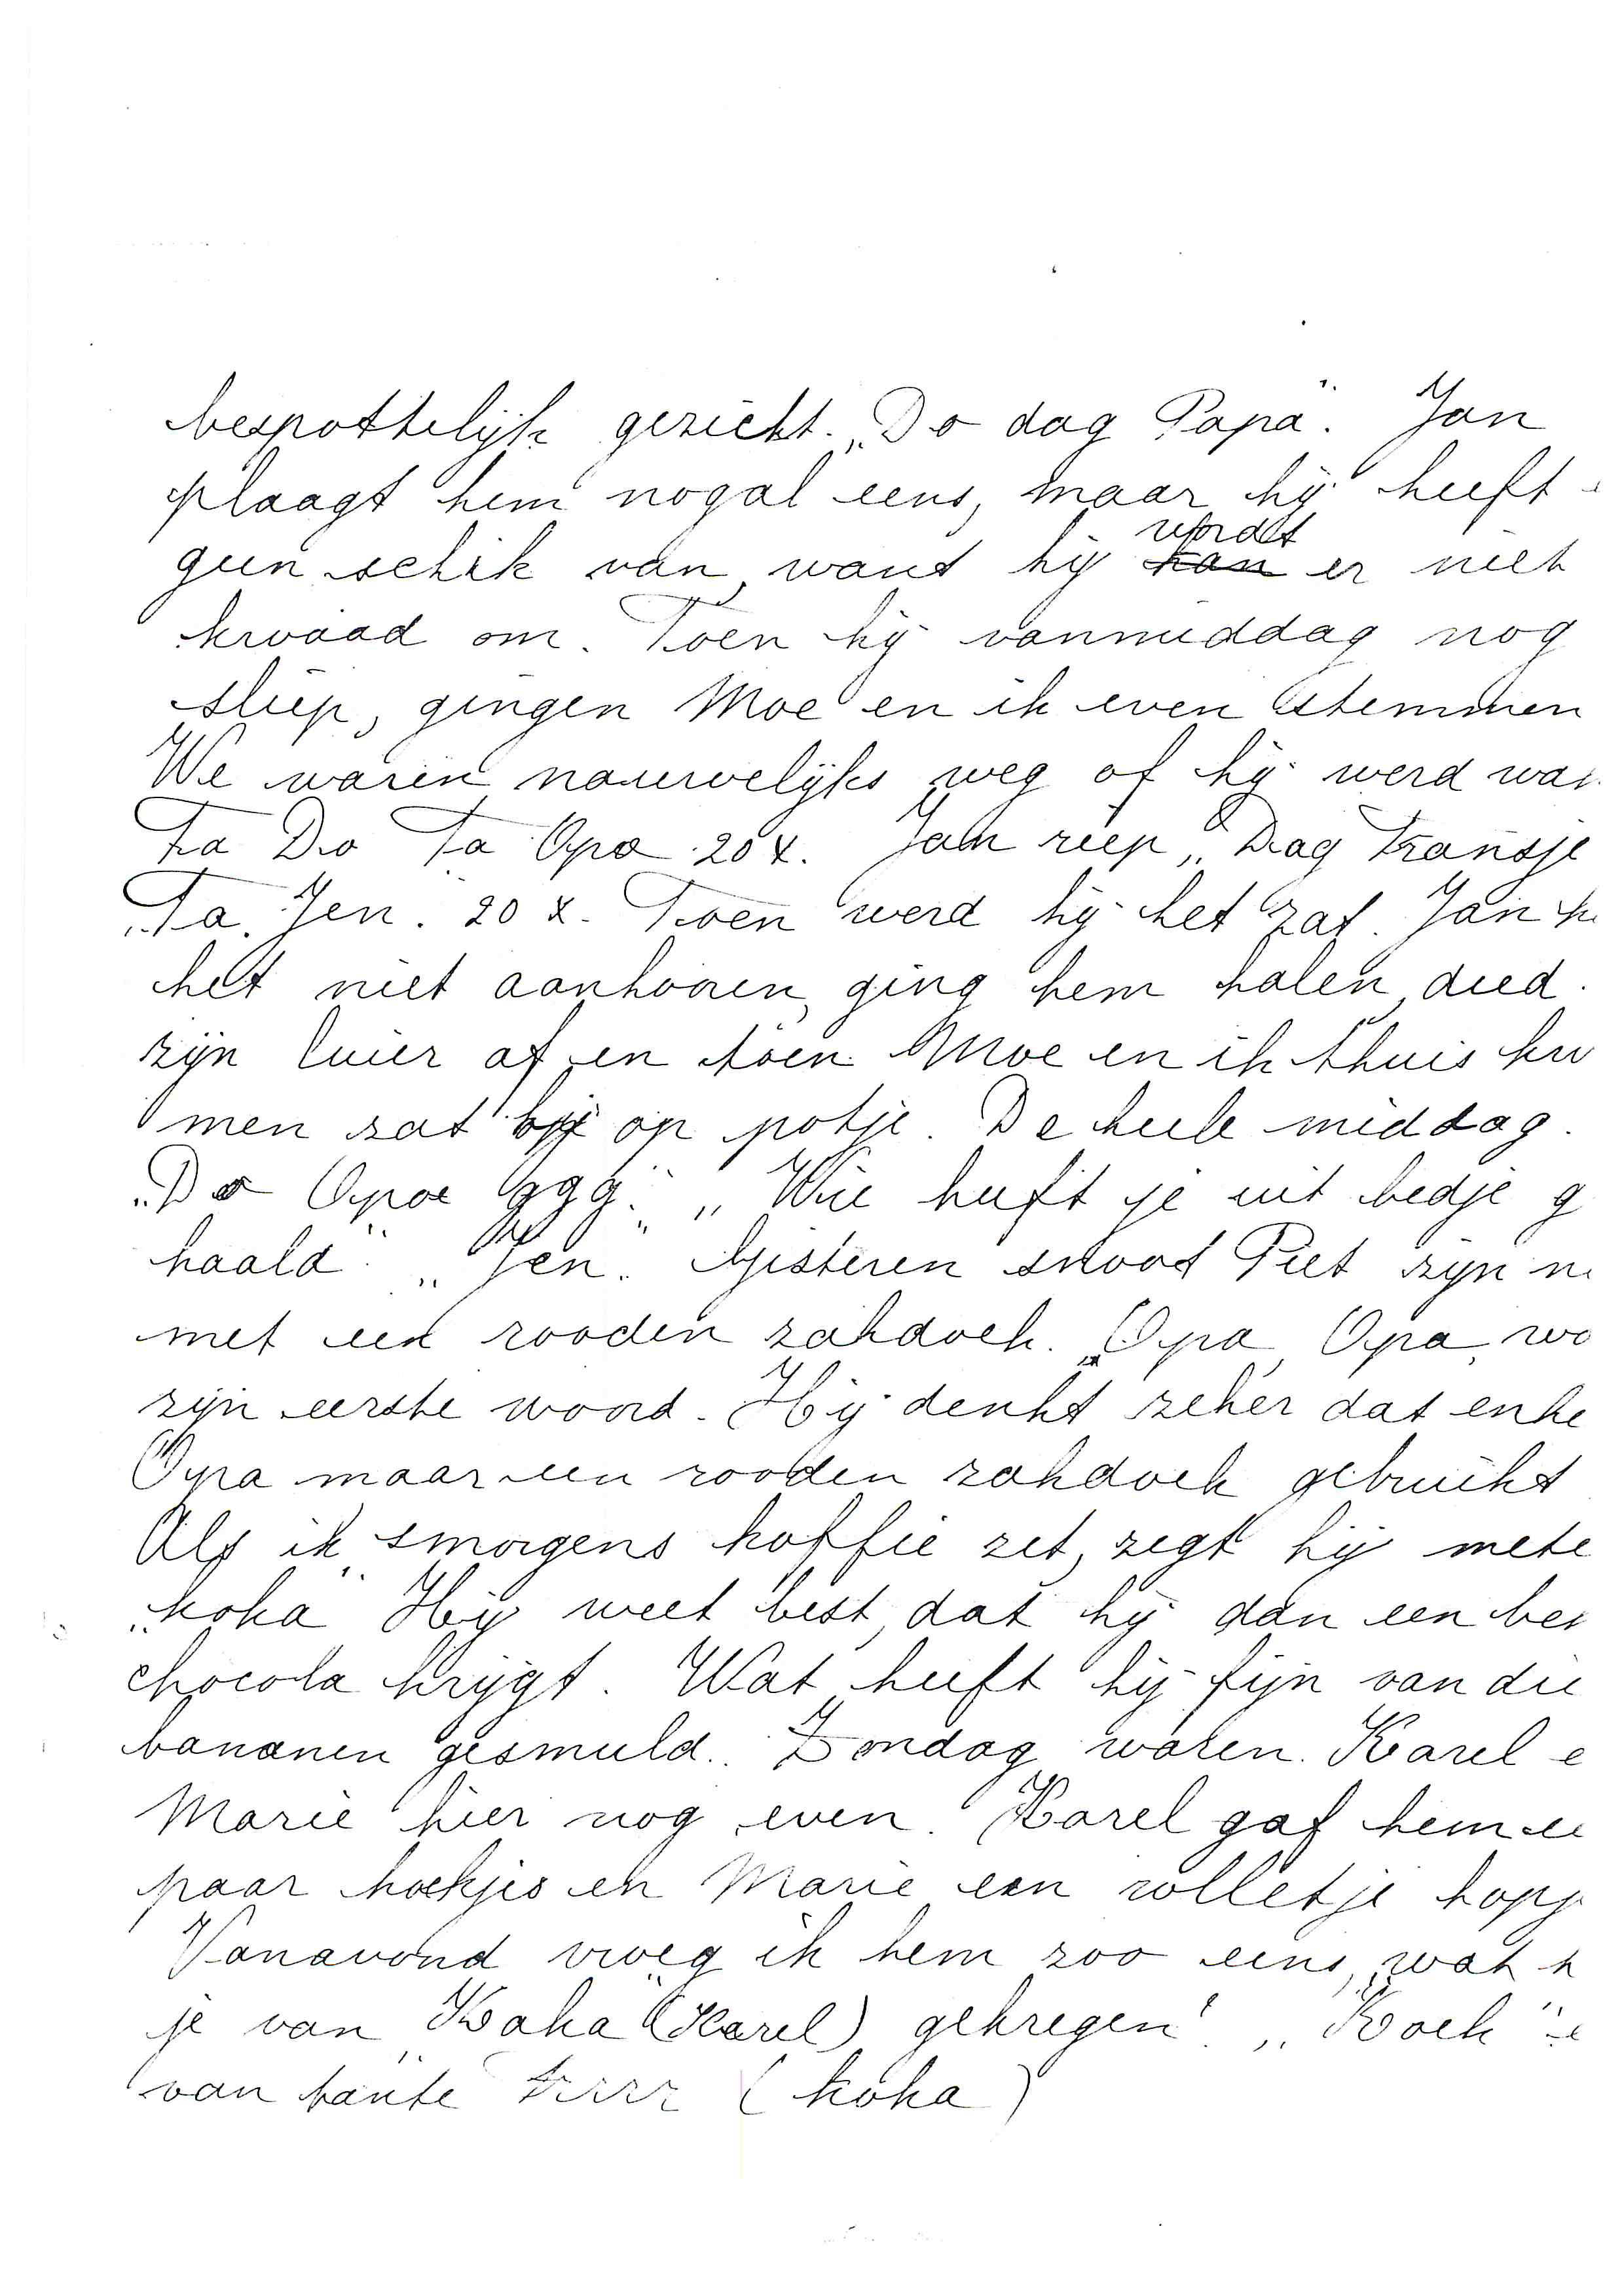 bespottelijk gezicht. „Do dag Papa". Jan
plaagt hem nogal eens, maar hij heeft
geen schik van, want hij wordt er niet
kwaad om. Toen hij vanmiddag nog
sliep, gingen Moe en ik even stemmen
We waren nauwelijks weg of hij werd
Ta Do Ta Opa 20 x. Jan riep „Dag Fransje
„Ta Jen. 20 x. Toen werd hij het zat. Jan
het niet aanhooren, ging hem halen, deed
zijn luier af en toen Moe en ik thuis kw
men zat hij op potje. De heele middag.
„Do Opoe ggg." „Wie heeft je uit bedje g
haald" „Jen". Gisteren snoot Piet zijn
met een rooden zakdoek. „Opa, Opa,
zijn eerste woord. Hij denkt zeker dat enke
Opa maar een rooden zakdoek gebruikt
Als ik smorgens koffie zet, zegt hij mete
„koka" Hij weet best, dat hij dan een
chocola krijgt. Wat heeft hij fijn van die
bananen gesmuld. Zondag waren Karel e
Marie hier nog even. Karel gaf hem ee
paar koekjes en Marie een rolletje hopj
Vanavond vroeg ik hem zoo eens, „wat h
je van Kaka (Karel) gekregen". „Koek" e
van tante Rrrr (koka)